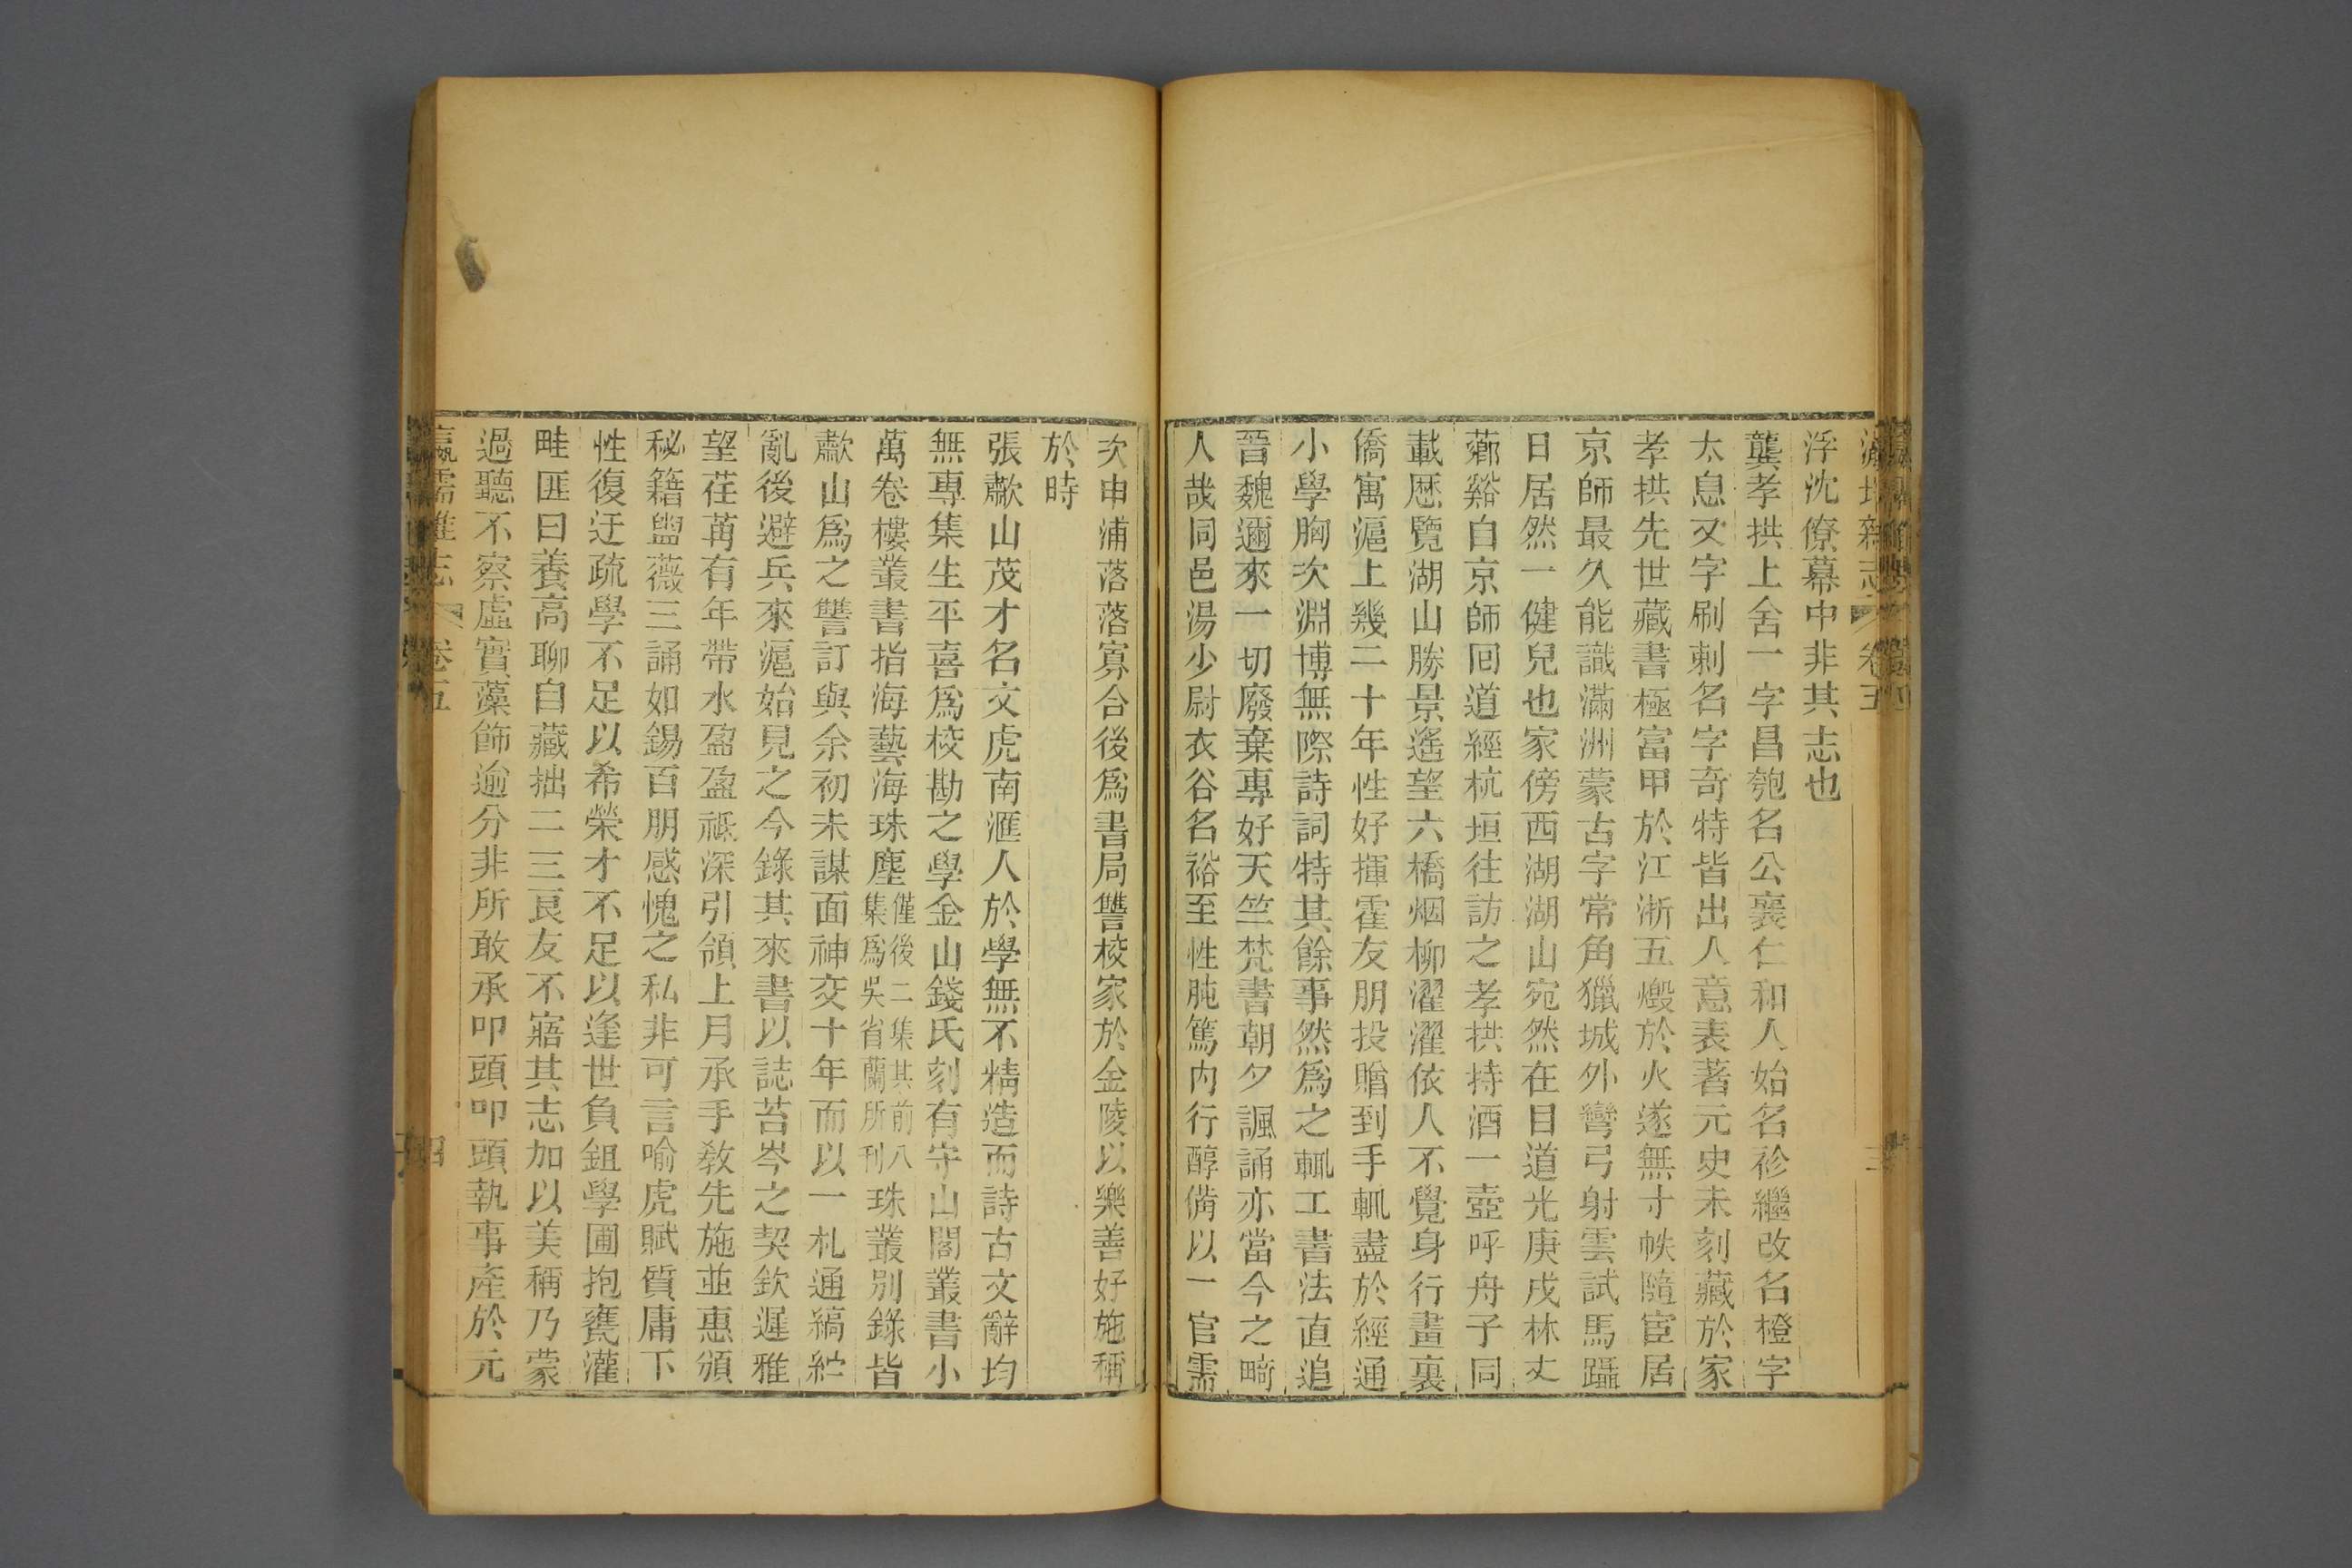 瀛壖雜志 卷五 三
浮沈僚幕中非其志也
龔孝拱上舍一字昌匏名公襄仁和人始名袗繼改名橙字
太息又字刷刺名字奇特皆出人意表著元史未刻藏於家
孝拱先世藏書極富甲於江浙五燬於火遂無寸帙隨宦居
京師最久能識滿洲蒙古字常角獵城外彎弓射雲試馬躡
日居然一健兒也家傍西湖湖山宛然在目道光庚戌林丈
薌谿自京師囘道經杭垣往訪之孝拱持酒一壺呼舟子同
載厯覽湖山勝景遙望六橋烟柳濯濯依人不覺身行畫裏
僑寓滬上幾二十年性好揮霍友朋投贈到手輒盡於經通
小學胸次淵博無際詩詞特其餘事然爲之輒工書法直追
晉魏邇來一切廢棄專好天竺梵書朝夕諷誦亦當今之畸
人哉同邑湯少尉衣谷名裕至性肫篤內行醇備以一官需
次申浦落落寡合後爲書局讐校家於金陵以樂善好施稱
於時
張歗山茂才名文虎南滙人於學無不精造而詩古文辭均
無專集生平喜爲校勘之學金山錢氏刻有守山閣叢書小
萬卷樓叢書指海藝海珠塵僅後二集其前八集爲吳省蘭所刊珠叢別錄皆
歗山爲之讐訂與余初未謀面神交十年而以一札通縞紵
亂後避兵來滬始見之今錄其來書以誌苔岑之契欽遲雅
望荏苒有年帶水盈盈祗深引領上月承手敎先施並惠頒
秘籍盥薇三誦如錫百朋感愧之私非可言喻虎賦質庸下
性復迂疏學不足以希榮才不足以逢世負鉏學圃抱甕灌
畦匪曰養高聊自藏拙二三良友不寤其志加以美稱乃蒙
過聽不察虛實藻飾逾分非所敢承叩頭叩頭執事產於元
瀛壖雜志 卷五 四